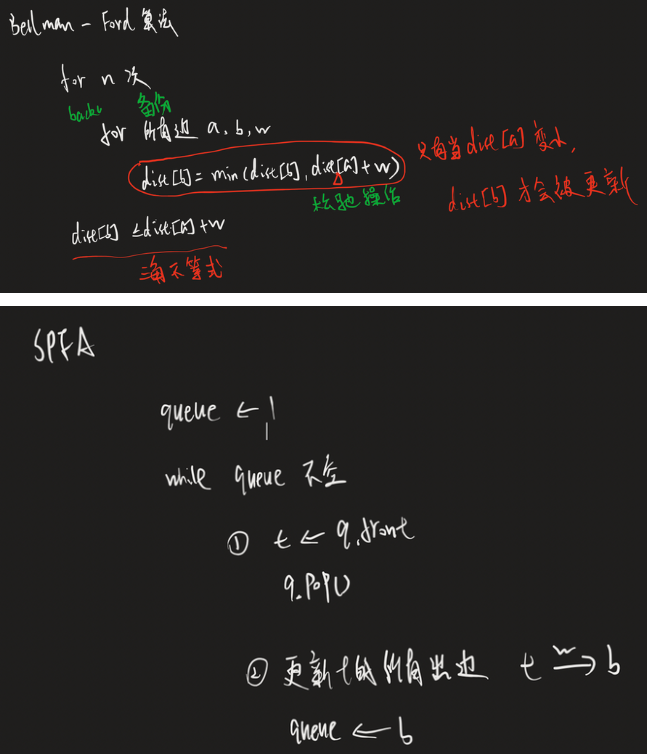 Bellman - Ford 算法
for n 次
备份
for 所有边 a, b, w
dist[b] = min(dist[b], dist[a] + w)
只有当 dist[a] 变小,
松弛操作
dist[b] 才会被更新
dist[b] ≤ dist[a] + w
三角不等式
SPFA
queue ← 1
while queue 不空
① t ← q.front
q.pop()
② 更新 t 的所有出边 t →w b
queue ← b